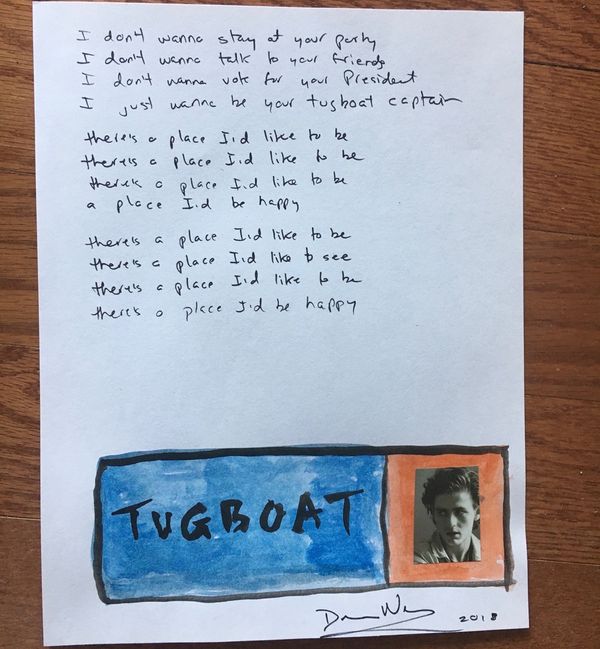 I don't wanna stay at your party
I don't wanna talk to your friends
I don't wanna vote for your President
I just wanna be your tugboat captain
there's a place I'd like to be
there's a place I'd like to be
there's a place I'd like to be
a place I'd be happy
there's a place I'd like to be
there's a place I'd like to see
there's a place I'd like to be
there's a place I'd be happy
TUGBOAT
2018